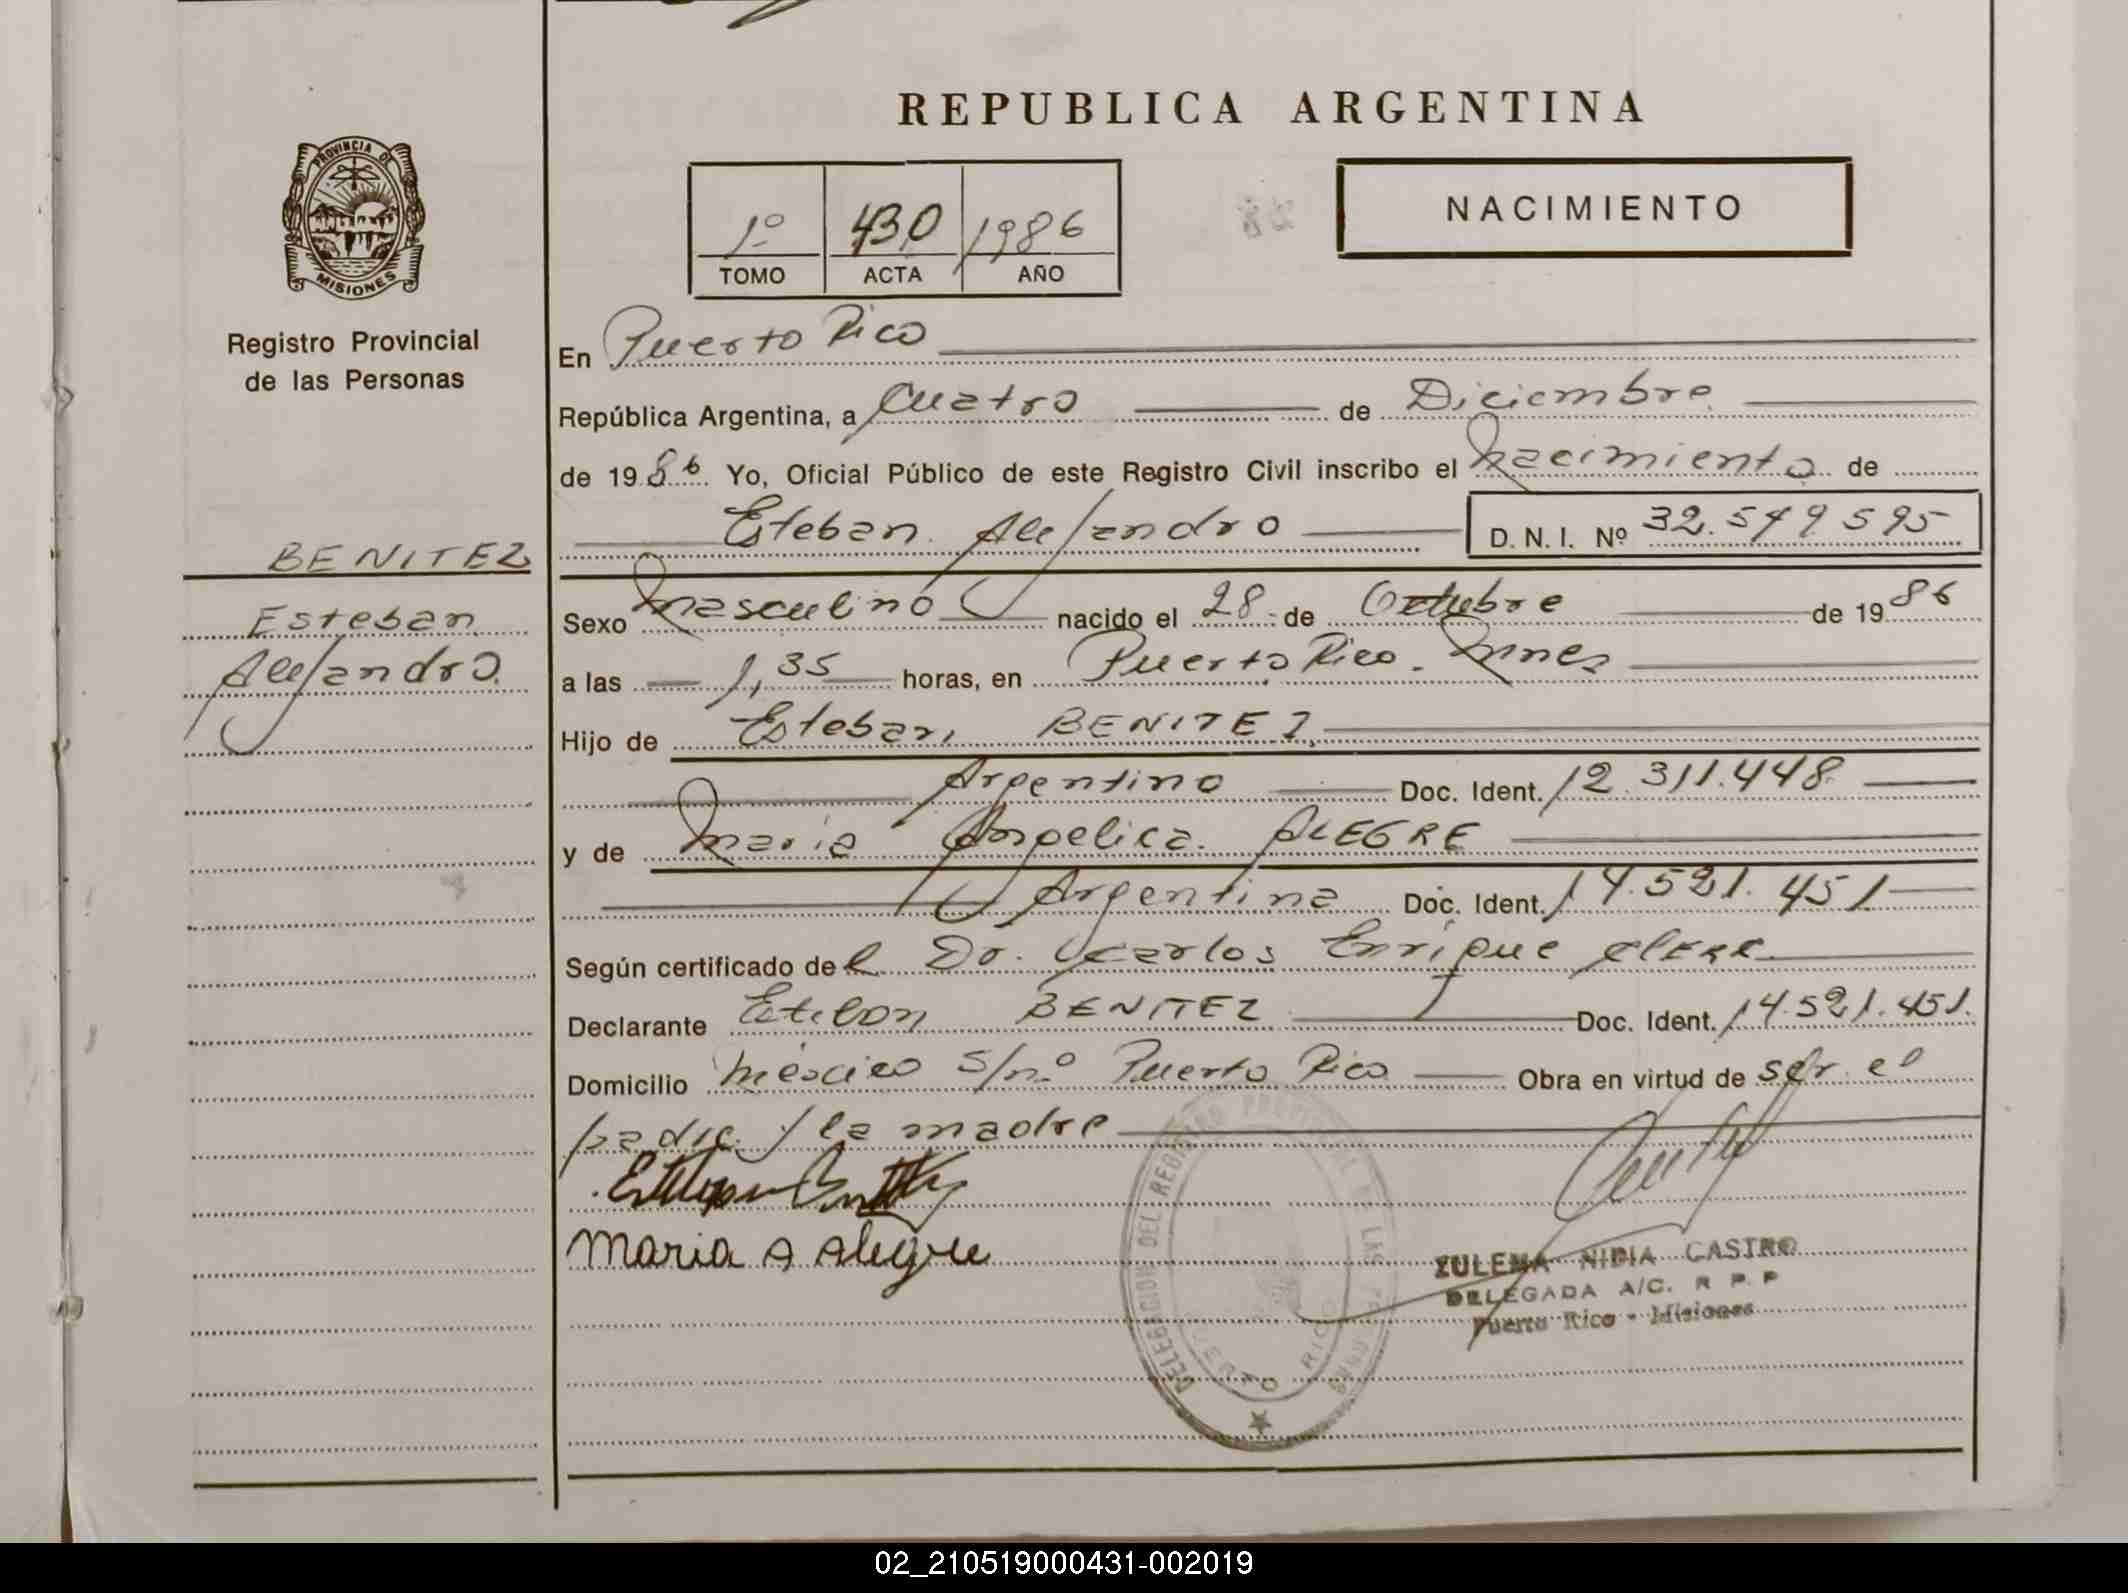 REPUBLICA ARGENTINA
PROVINCIA DE
MISIONES
Registro Provincial
de las Personas
1º 430 1986
TOMO ACTA AÑO
NACIMIENTO
En Puerto Rico
República Argentina, a Cuatro de Diciembre
de 1986 Yo, Oficial Público de este Registro Civil inscribo el Nacimiento de
Esteban Alejandro D. N. I. Nº 32.549595
BENITEZ
Esteban
Alejandro.
Sexo Masculino nacido el 28 de Octubre de 1986
a las 1,35 horas, en Puerto Rico. Mnes
Hijo de Esteban BENITEZ
Argentino Doc. Ident. 12.311.448
y de Maria Angelica ALEGRE
Argentina Doc. Ident. 14.521.451
Según certificado del Dr. Carlos Enrique
Declarante Esteban BENITEZ Doc. Ident. 14.521.451.
Domicilio México s/nº Puerto Rico Obra en virtud de ser el
padre y la madre
Maria A Alegre
DELEGACION DEL REGISTRO PROVINCIAL DE LAS PERSONAS
PUERTO RICO
ZULEMA NIDIA CASTRO
DELEGADA A/C. R P P
Puerto Rico - Misiones
02_210519000431-002019